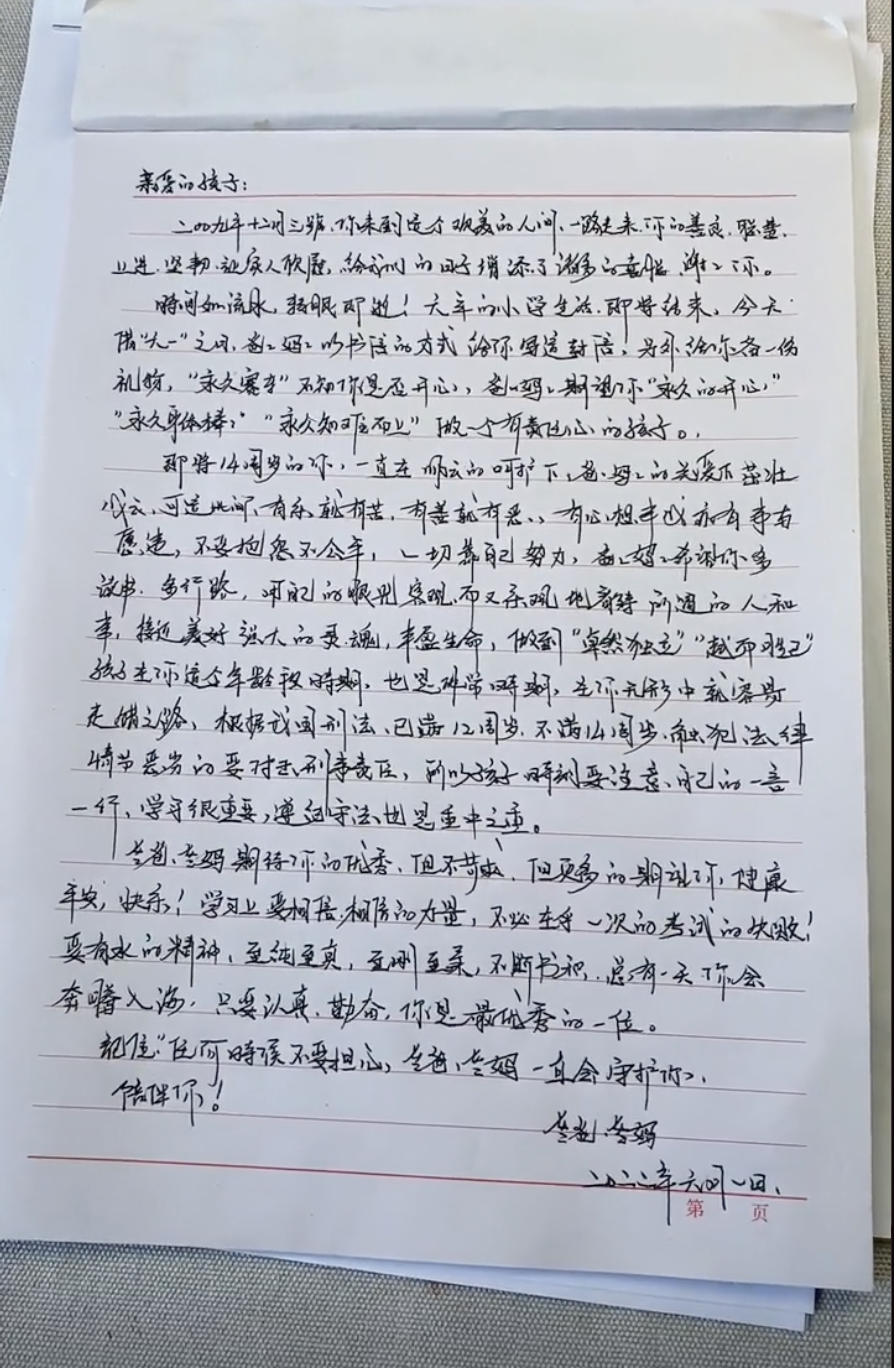 亲爱的孩子：
二00九年十二月三號，你来到这个观美的人间，一路走来，你的善良、聪慧、
上进、坚韧，让家人欣慰，给我们的日子增添了诸多的喜悦，谢谢你。
时间如流水，转眼即逝！六年的小学生活，即将结束，今天
借“六一”之日，爸爸妈妈以书信的方式给你写这封信，另外给你备一份
礼物，“永久赛车”不知你是否开心，爸爸妈妈期望你“永久的开心”
“永久身体棒”“永久知难而上”做一个有责任心的孩子。
即将14周岁的你，一直在师长的呵护下，爸爸妈妈的关爱下茁壮
成长，可这世间，有乐就有苦，有善就有恶，有心想事成亦有事与
愿违，不要抱怨不公平，一切靠自己努力，爸爸妈妈希望你多
读书、多行路，用自己的眼光客观而又乐观地看待所遇的人和
事，接近美好强大的灵魂，丰盈生命，做到“卓然独立”“越而胜己”
孩子在你这个年龄段时期，也是非常时期，在你无形中就容易
走错之路，根据我国刑法，已满12周岁，不满14周岁，触犯法律
情节恶劣的要对其刑事责任，所以孩子时刻要注意自己的一言
一行，学习很重要，遵纪守法也是重中之重。
爸爸、妈妈期待你的优秀，但不苛求，但更多的期望你，健康
平安，快乐！学习上要相信，相信的力量，不必在乎一次的考试的失败！
要有水的精神，至纯至真，至刚至柔，不断书积，总有一天你会
奔腾入海，只要认真、勤奋，你是最优秀的一位。
记住：任何时候不要担心，爸爸、妈妈一直会守护你，
陪伴你！
爸爸、妈妈
二0二二年六月一日
第 页